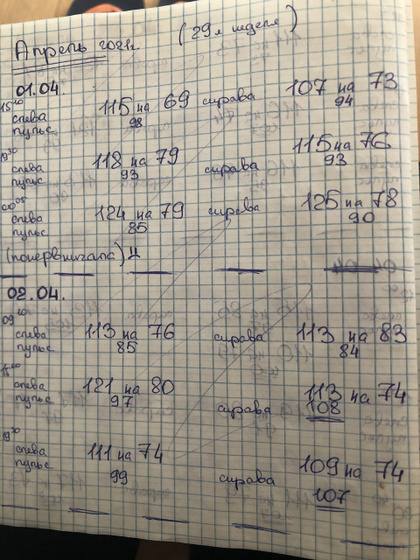 Апрель 2021г. (29я неделя)
01.04.
15⁰⁰ слева 115 на 69 справа 107 на 73
пульс 98 94
19³⁰ слева 118 на 79 справа 115 на 76
пульс 93 93
00⁰⁵ слева 124 на 79 справа 125 на 78
пульс 85 90
(понервничала)
02.04.
слева 113 на 76 справа 113 на 83
пульс 85 84
слева 121 на 80 справа 113 на 74
пульс 97 108
слева 111 на 74 справа 109 на 74
пульс 99 107